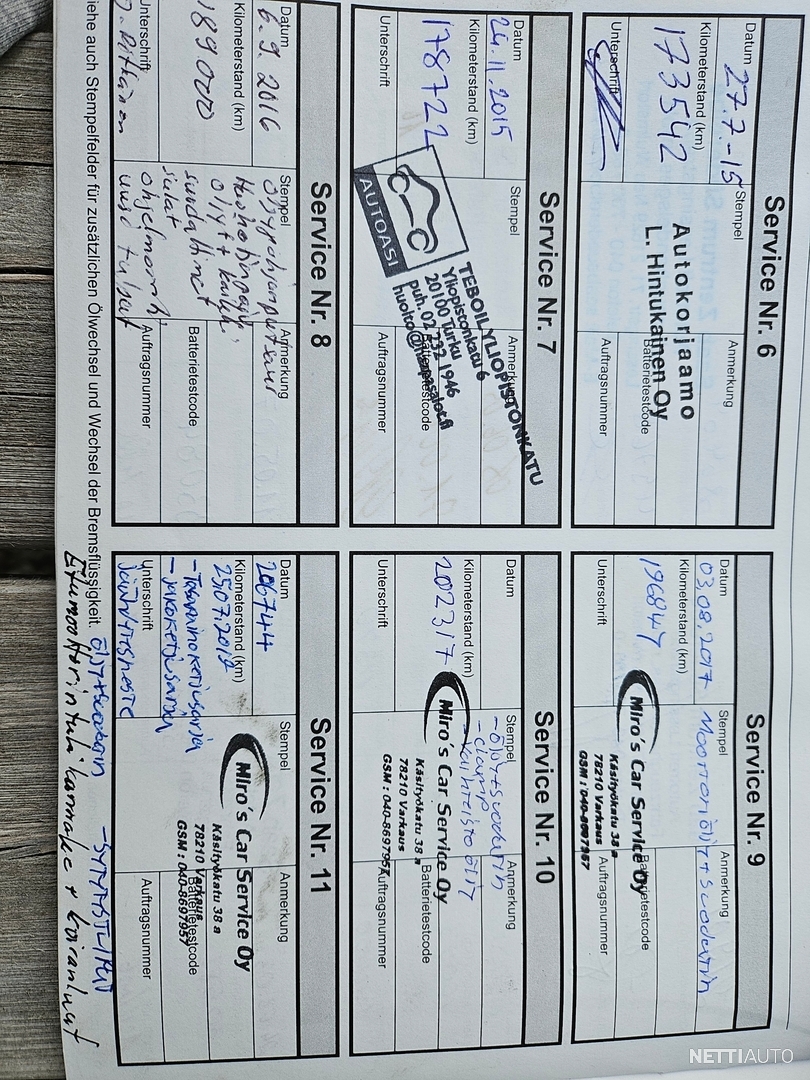 Service Nr. 6
Datum
27.7.-15
Kilometerstand (km)
173542
Unterschrift
Stempel
Autokorjaamo
L. Hintukainen Oy
Anmerkung
Batterietestcode
Auftragsnummer
Service Nr. 7
Datum
24.11.2015
Kilometerstand (km)
178722
Unterschrift
Stempel
AUTOASI
TEBOIL YLIOPISTONKATU
Yliopistonkatu 6
20100 Turku
puh. 02 232 1946
Anmerkung
Batterietestcode
Auftragsnummer
Service Nr. 8
Datum
6.9.2016
Kilometerstand (km)
189000
Unterschrift
Stempel
öljyt +
suodattimet
Anmerkung
Batterietestcode
Auftragsnummer
Service Nr. 9
Datum
03.08.2017
Kilometerstand (km)
196847
Unterschrift
Stempel
Moottoriöljy + suodatin
Miro's Car Service Oy
Käsityökatu 38 a
78210 Varkaus
GSM : 040-8697957
Batterietestcode
Auftragsnummer
Service Nr. 10
Datum
Kilometerstand (km)
202317
Unterschrift
Stempel
- öljy + suodatin
- vaihteisto öljy
Miro's Car Service Oy
Käsityökatu 38 a
78210 Varkaus
GSM : 040-8697957
Anmerkung
Batterietestcode
Auftragsnummer
Service Nr. 11
Datum
206744
Kilometerstand (km)
25.07.2018
- jakoketjusarja
Unterschrift
Jäähdytysneste
Stempel
Miro's Car Service Oy
Käsityökatu 38 a
78210 Varkaus
GSM : 040-8697957
Anmerkung
Batterietestcode
Auftragsnummer
iehe auch Stempelfelder für zusätzlichen Ölwechsel und Wechsel der Bremsflüssigkeit.
öljy + suodatin
Etumoottorintuki kannake + koiranluut
NETTIAUTO